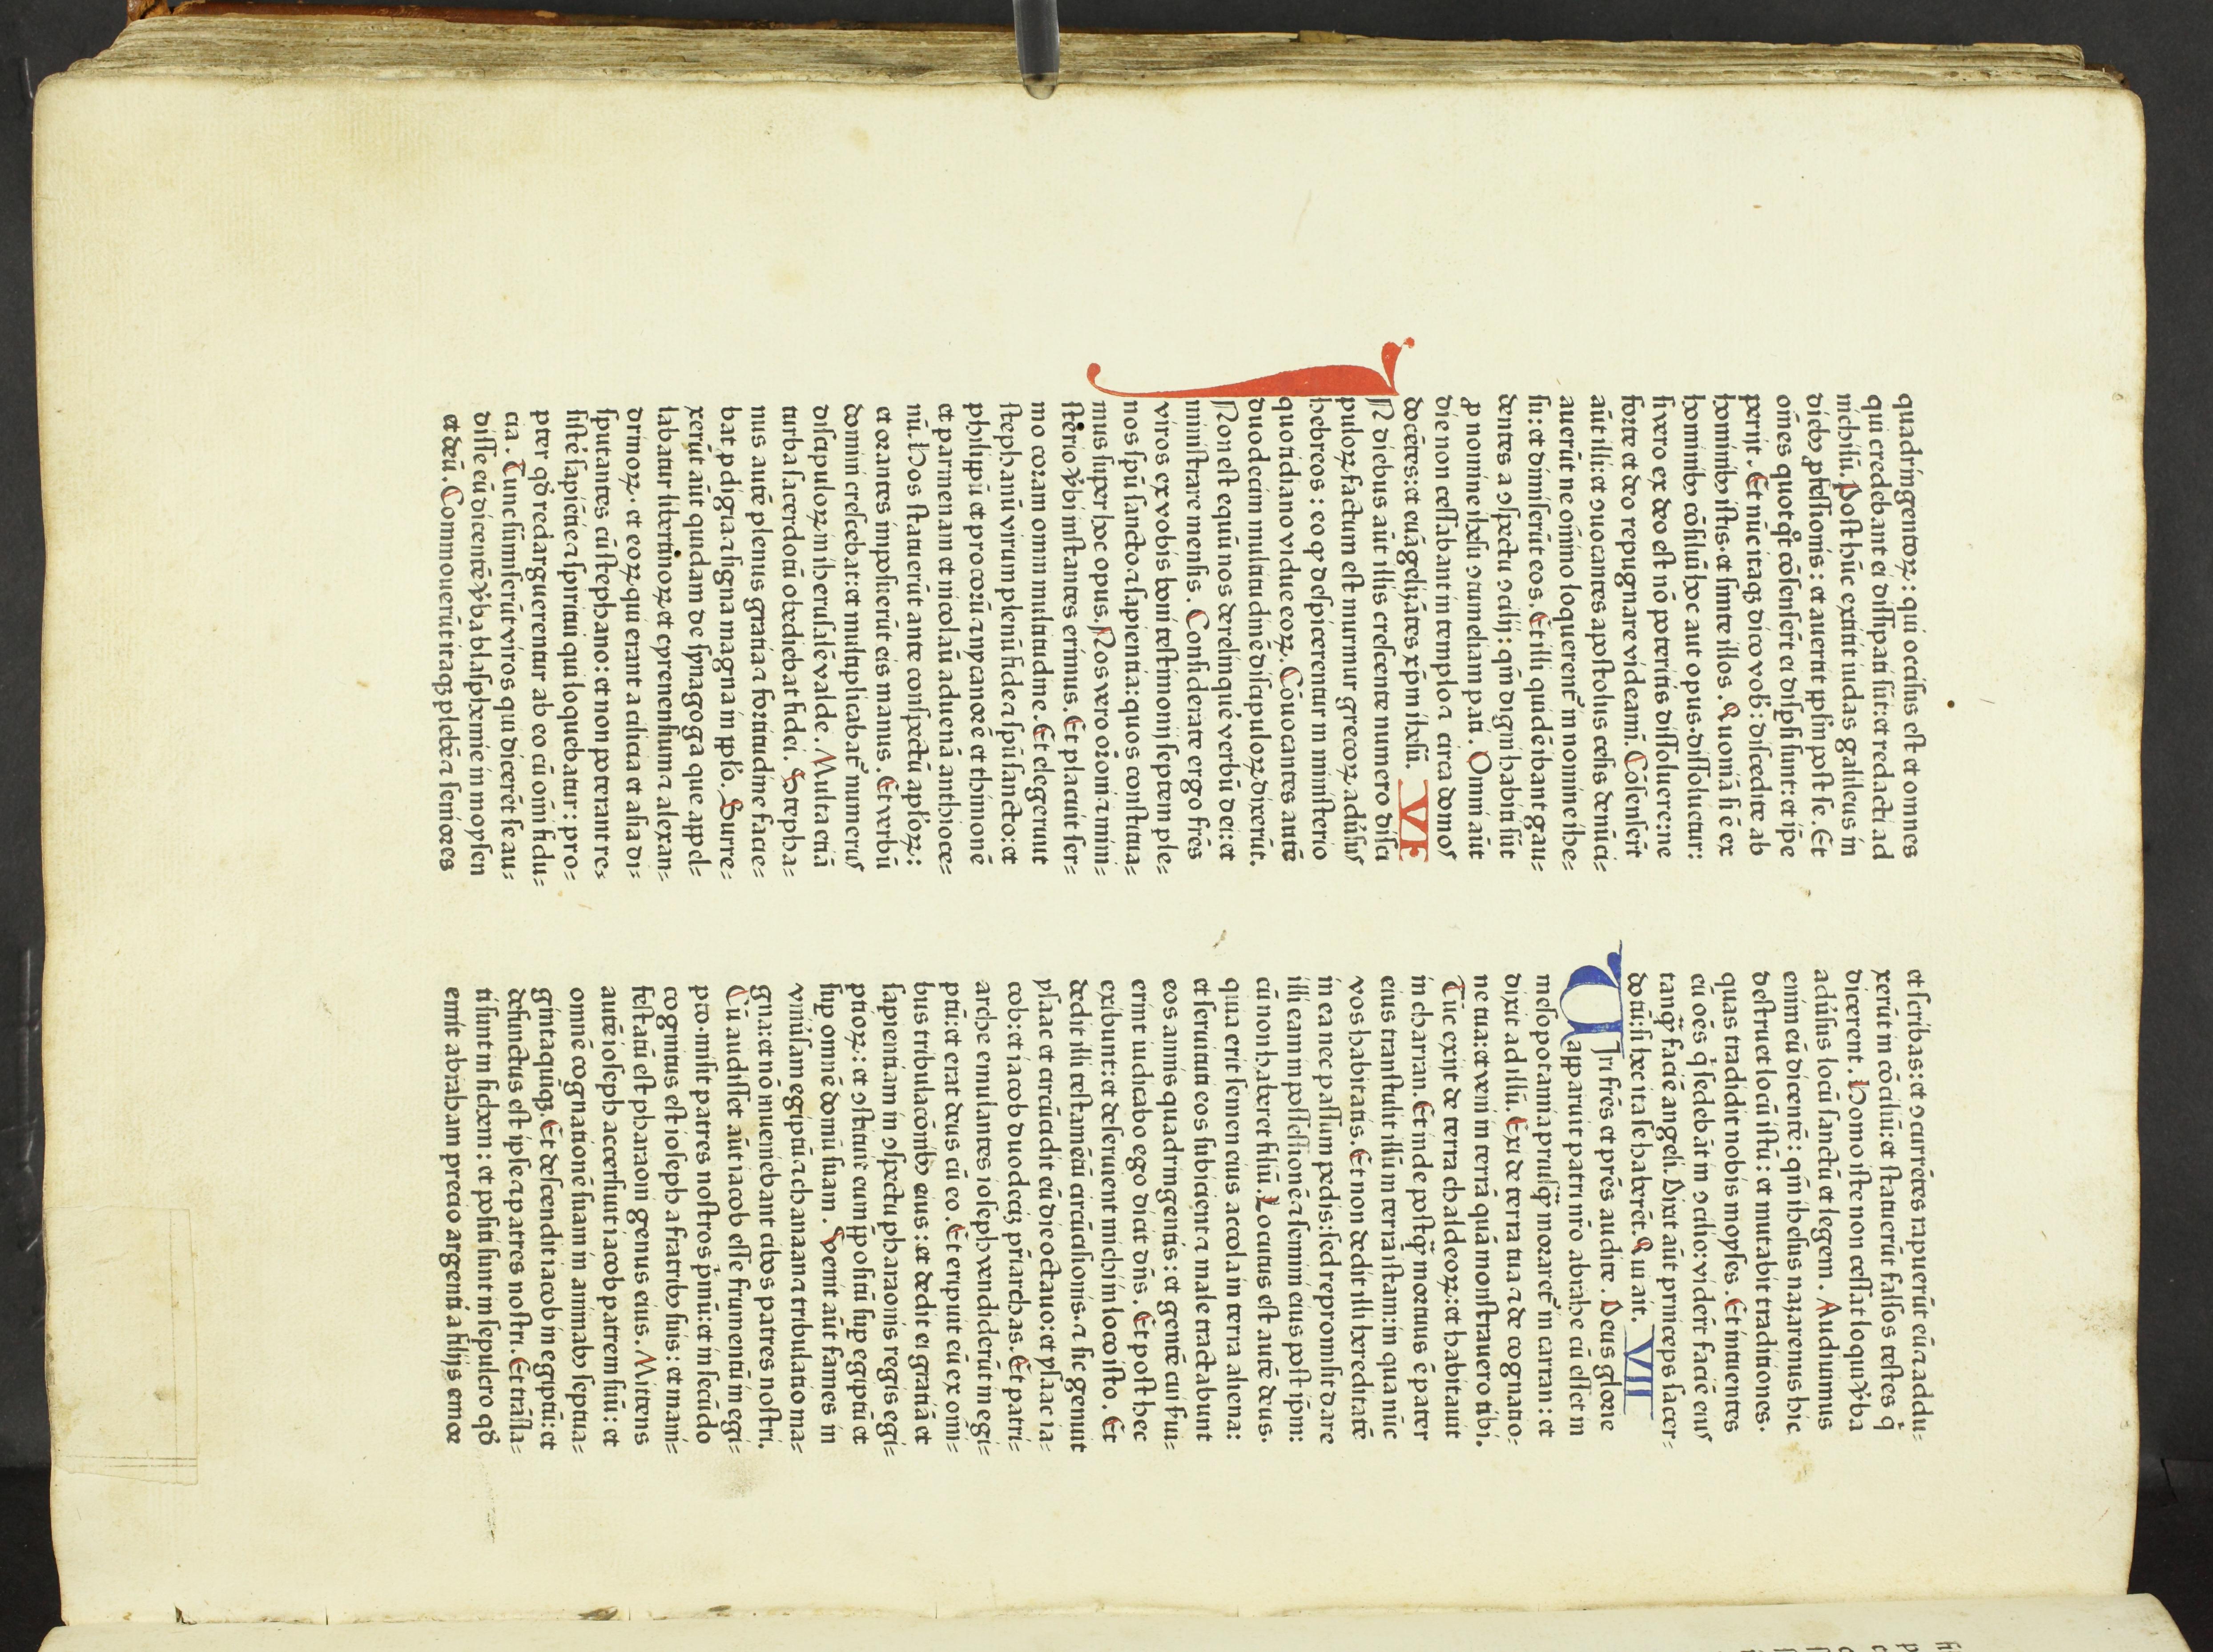 quadringentoꝝ: qui occisus est et omnes
qui credebant ei dissipati sūt: et redacti ad
nichilū. Post hūc extitit iudas galileus in
diebꝫ ꝓfessionis: et auertit ppl̄m post se. Et
om̄es quotq̊t cōsenserūt ei dispersi sunt: et ip̄e
perijt. Et nūc itaqꝫ dico vob̄: discedite ab
hominibꝫ istis. et sinite illos. Quoniā si ē ex
hominibꝫ cōsiliū hoc aut opus. dissoluetur:
si vero ex deo est nō poteritis dissoluere: ne
forte et deo repugnare videamī. Cōsenserūt
aūt illi: et ↄuocantes apostolus cesis denūci-
auerūt ne om̄ino loquerent᷑ in nomine ihe-
su: et dimiserūt eos. Et illi quidē ibant gau-
dentes a ↄspectu ↄcilij: qm̄ digni habiti sūt
ꝓ nomine ihesu ↄtumeliam pati. Omni aūt
die non cessabant in templo ⁊ circa domos
docētes: et euāgelizātes xp̄m ihesū. VI
IN diebus aūt illis crescente numero disci
puloꝝ factum est murmur grecoꝝ aduͥsus
hebreos: eo qꝙ despicerentur in ministerio
quotidiano vidue eoꝝ. Cōuocantes autē
duodecim multitudinē discipuloꝝ dixerūt.
Non est equū nos derelinquē verbū dei: et
ministrare mensis. Considerate ergo fr̄es
viros ex vobis boni testimonij septem ple-
nos sp̄u sancto ⁊ sapientia: quos constitua-
mus super hoc opus. Nos vero or̄oni ⁊ mini-
sterio v̓bi instantes erimus. Et placuit ser-
mo coram omni multitudine. Et elegerunt
stephanū virum plenū fide ⁊ sp̄u sancto: et
philippū et procorū ⁊ nycanorē et thimonē
et parmenam et nicolaū aduenā anthioce-
nū. Hos statuerūt ante conspectū apl̓oꝝ:
et orantes imposuerūt eis manus. Et verbū
domini crescebat: et multiplicabat᷑ numerus
discipuloꝝ in iherusalē valde. Multa etiā
turba sacerdotū obediebat fidei. Stepha-
nus autē plenus gratia ⁊ fortitudine facie-
bat ꝓdigia ⁊ signa magna in ppl̓o. Surre-
xerūt aūt quidam de synagoga que appel-
labatur libertinoꝝ et cyrenensium ⁊ alexan-
drinoꝝ. et eoꝝ qui erant a cilicia et asia di-
sputantes cū stephano: et non poterant re-
sistē sapiētie ⁊ spiritui qui loquebatur: pro-
pter qd̓ redarguerentur ab eo cū om̄i fidu-
cia. Tunc summiserūt viros qui dicerēt se au-
disse eū dicentē v̓ba blasphemie in moysen
et deū. Commouerūt itaqꝫ plebē ⁊ seniores
et scribas: et ↄcurrētes rapuerūt eū ⁊ addu-
xerūt in cōciliū: et statuerūt falsos testes q̇
dicerent. Homo iste non cessat loqui v̓ba
aduͥsus locū sanctū et legem. Audiuimus
enim eū dicentē: qm̄ ihesus nazarenus hic
destruet locū istū: et mutabit traditiones.
quas tradidit nobis moyses. Et intuentes
eū oēs q̇ sedebāt in ↄcilio: viderūt faciē eius
tanqꝙ̄ faciē angeli. Dixit aūt princeps sacer-
dotū: si hec ita se haberēt. Qui ait. VII
Viri fr̄es et pr̄es audite. Deus glorie
apparuit patri nr̄o abrahe cū esset in
mesopotamia priusqꝙ̄ moraret᷑ in carran: et
dixit ad illū. Exi de terra tua ⁊ de cognatio-
ne tua: et veni in terrā quā monstrauero tibi.
Tūc exijt de terra chaldeoꝝ: et habitauit
in charran. Et inde postqꝙ̄ mortuus ē pater
eius transtulit illū in terrā istam: in qua nūc
vos habitatis. Et non dedit illi hereditatē
in ea nec passum pedis: sed repromisit dare
illi eam in possessionē ⁊ semini eius post ip̄m:
cū non haberet filiū. Locutus est autē deus.
qua erit semen eius accola in terra aliena:
et seruituti eos subicient ⁊ male tractabunt
eos annis quadringentis: et gentē cui serui-
erint iudicabo ego dicit dn̄s. Et post hec
exibunt: et deseruient michi in loco isto. Et
dedit illi testamētū circūcisionis. ⁊ sic genuit
ysaac et circūcidit eū die octauo: et ysaac ia-
cob: et iacob duodeciꝫ pr̄iarchas. Et patri-
arche emulantes ioseph vendiderūt in egi-
ptū: et erat deus cū eo. Et eripuit eū ex omni-
bus tribulacōnibꝫ eius: et dedit ei gratiā et
sapientiam in ↄspectu pharaonis regis egi-
ptioꝝ: et ↄstituit eum p̄positū suꝑ egiptū et
suꝑ omnē domū suam. Venit aūt fames in
vniuͥsam egiptū ⁊ chanaan ⁊ tribulatio ma-
gna: et nō inueniebant cibos patres nostri.
Cū audisset aūt iacob esse frumentū in egi-
pto. misit patres nostros p̓mū: et in secūdo
cognitus est ioseph a fratribꝫ suis: et mani-
festatū est pharaoni genus eius. Mittens
autē ioseph accersiuit iacob patrem suū: et
omnē cognationē suam in animabꝫ septua-
gintaquīqꝫ. Et descendit iacob in egiptū: et
defunctus est ipse ⁊ patres nostri. Et trāsla-
ti sunt in sichem: et positi sunt in sepulcro qd̓
emit abraham precio argenti a filijs emor